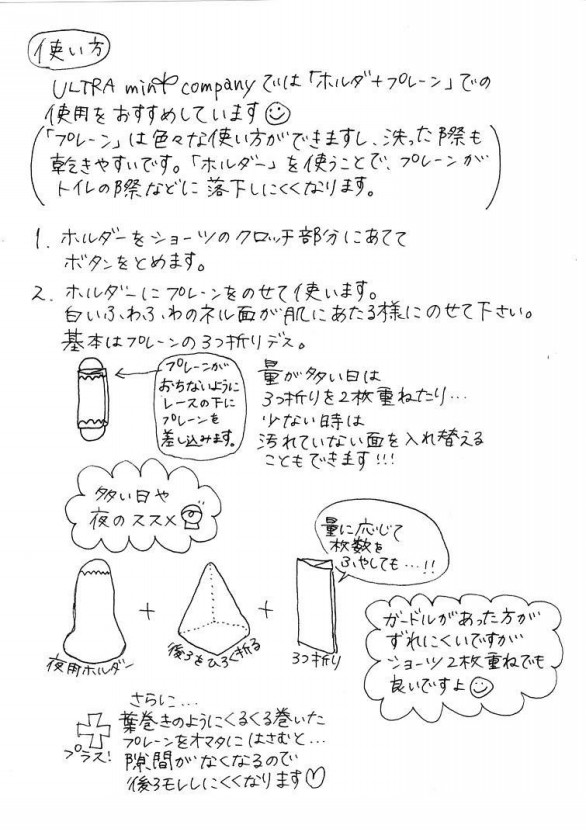 使い方
ULTRA mint companyでは「ホルダ+プレーン」での
使用をおすすめしています
「プレーン」は色々な使い方ができますし、洗った際も
乾きやすいです。「ホルダー」を使うことで、プレーンが
トイレの際などに落下しにくくなります。
1. ホルダーをショーツのクロッチ部分にあてて
ボタンをとめます。
2. ホルダーにプレーンをのせて使います。
白いふわふわのネル面が肌にあたる様にのせて下さい。
基本はプレーンの3つ折りデス。
プレーンが
おちないように
レースの下に
プレーンを
差し込みます。
量が多い日は
3つ折りを2枚重ねたり…
少ない時は
汚れていない面を入れ替える
こともできます!!!
多い日や
夜のススメ
量に応じて
枚数を
ふやしても…!!
夜用ホルダー
+
後ろをひろく折る
+
3つ折り
ガードルがあった方が
ずれにくいですが
ショーツ2枚重ねでも
良いですよ
プラス!
さらに…
葉巻きのようにくるくる巻いた
プレーンをオマタにはさむと…
隙間がなくなるので
後ろモレしにくくなります♡